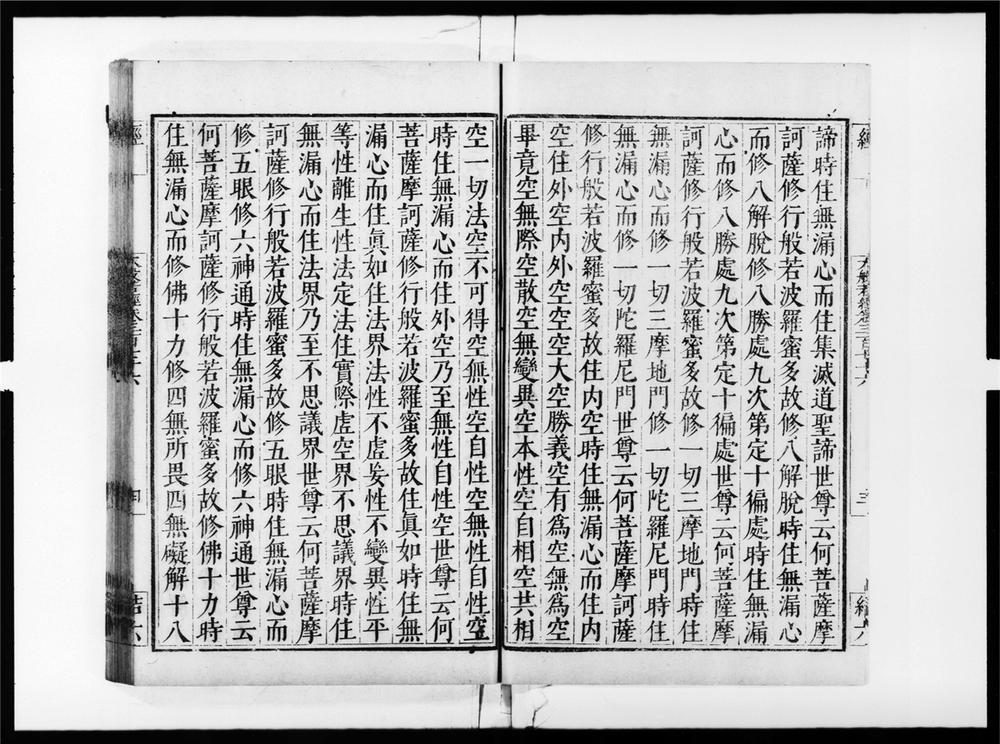 諦時住無漏心而住集滅道聖諦世尊云何菩薩摩
訶薩修行般若波羅蜜多故修八解脫時住無漏心
而修八解脫修八勝處九次第定十徧處時住無漏
心而修八勝處九次第定十徧處世尊云何菩薩摩
訶薩修行般若波羅蜜多故修一切三摩地門時住
無漏心而修一切三摩地門修一切陀羅尼門時住
無漏心而修一切陀羅尼門世尊云何菩薩摩訶薩
修行般若波羅蜜多故住內空時住無漏心而住內
空住外空內外空空空大空勝義空有爲空無爲空
畢竟空無際空散空無變異空本性空自相空共相
空一切法空不可得空無性空自性空無性自性空
時住無漏心而住外空乃至無性自性空世尊云何
菩薩摩訶薩修行般若波羅蜜多故住眞如時住無
漏心而住眞如住法界法性不虛妄性不變異性平
等性離生性法定法住實際虛空界不思議界時住
無漏心而住法界乃至不思議界世尊云何菩薩摩
訶薩修行般若波羅蜜多故修五眼時住無漏心而
修五眼修六神通時住無漏心而修六神通世尊云
何菩薩摩訶薩修行般若波羅蜜多故修佛十力時
住無漏心而修佛十力修四無所畏四無礙解十八
經